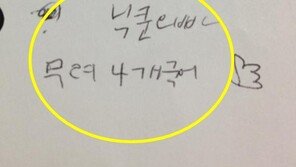 닉쿤오빠
무려 4개국어